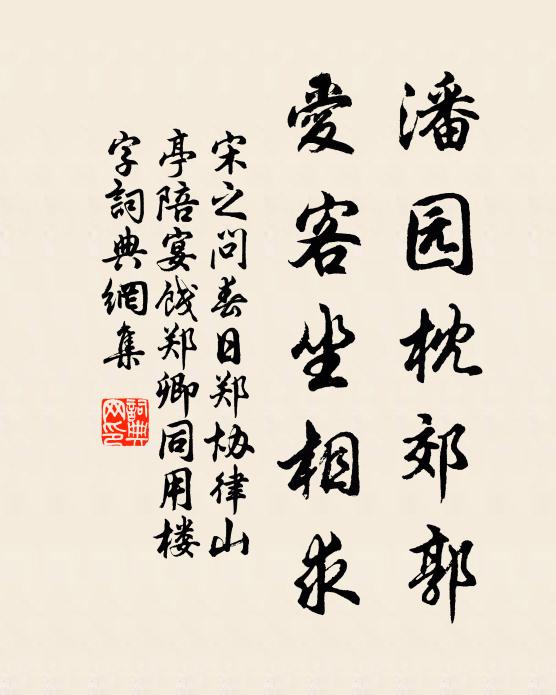 潘园枕郊郭
愛客坐相求
宋之问春日郑协律山
亭陪宴饯郑卿同用楼
字詞典網集
詞典網印